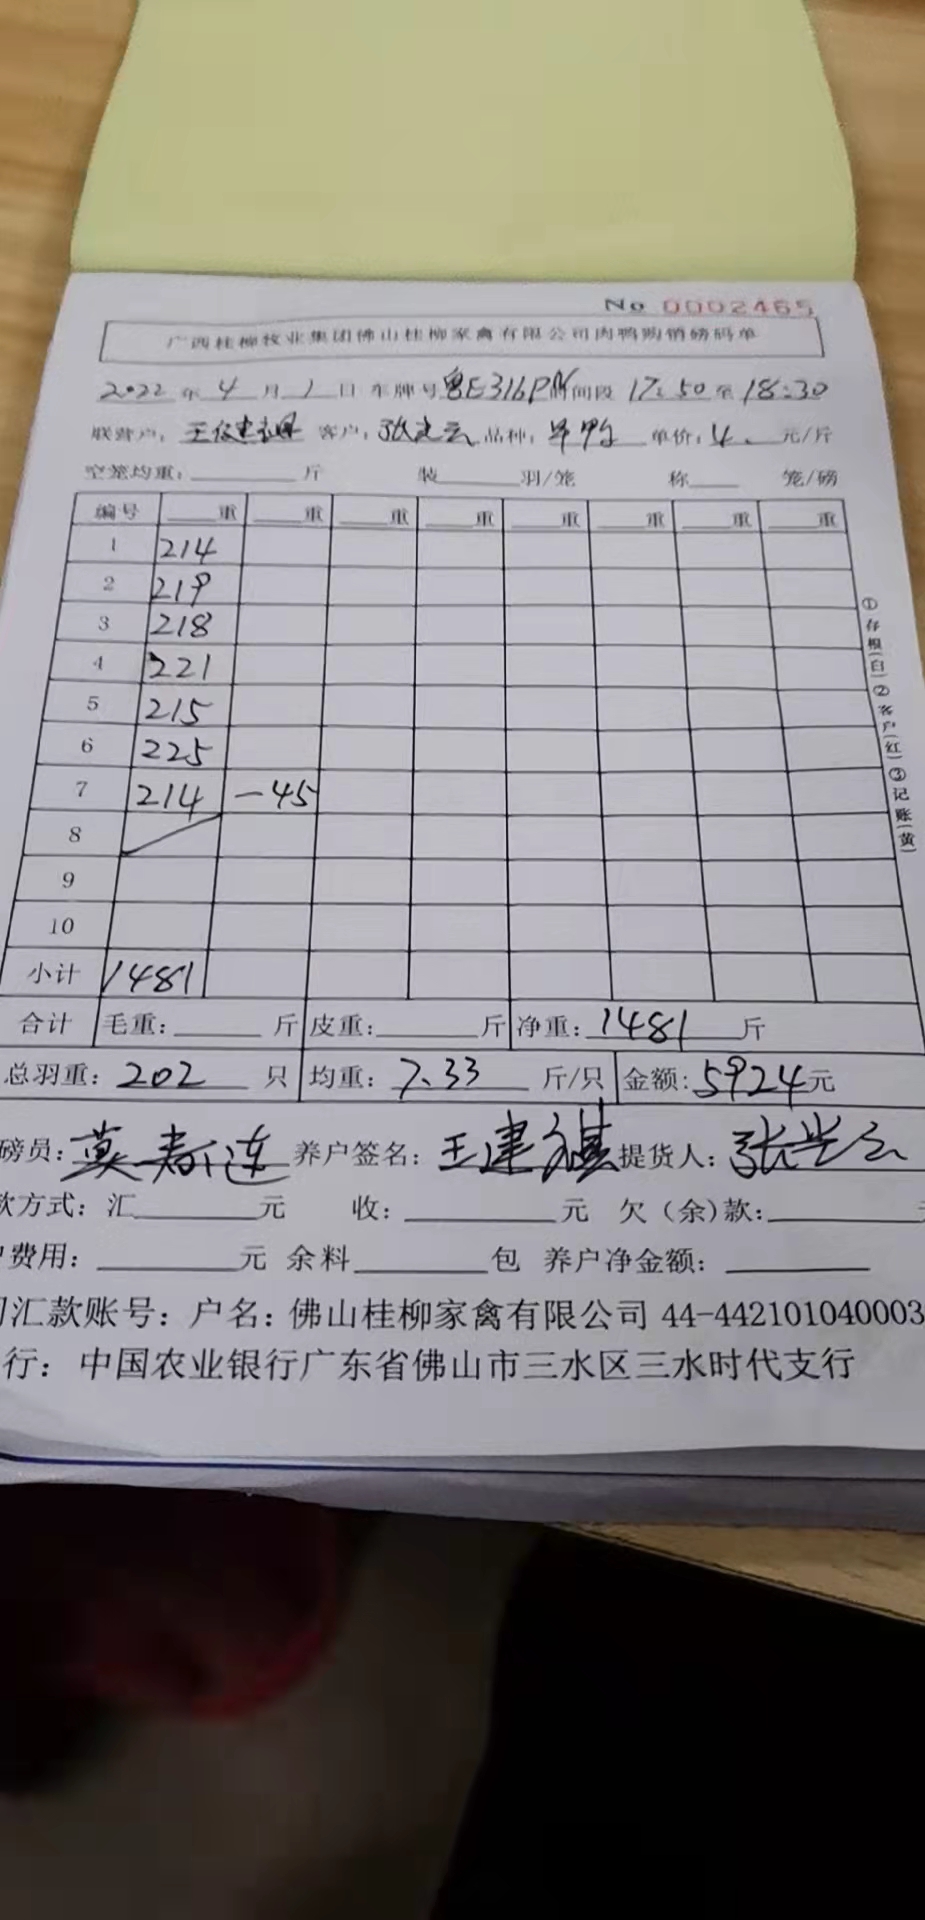 No 0002465
广西桂柳牧业集团佛山桂柳家禽有限公司肉鸭购销磅码单
2022年4月1日 车牌号 粤E316P 时间段 17:50至18:30
联营户: 客户: 张兴云 品种: 单价: 4. 元/斤
空笼均重: 斤 装 羽/笼 称 笼/磅
编号 重 重 重 重 重 重 重 重
1 214
2 219
3 218
4 221
5 215
6 225
7 214 -45
8
9
10
小计 1481
合计 毛重: 斤 皮重: 斤 净重: 1481 斤
总羽重: 202 只 均重: 7.33 斤/只 金额: 5924元
磅员: 养户签名: 王建 提货人: 张兴云
款方式: 汇 元 收: 元 欠(余)款:
费用: 元 余料 包 养户净金额:
汇款账号: 户名: 佛山桂柳家禽有限公司 44-442101040003
行: 中国农业银行广东省佛山市三水区三水时代支行
①存根(白)②客户(红)③记账(黄)